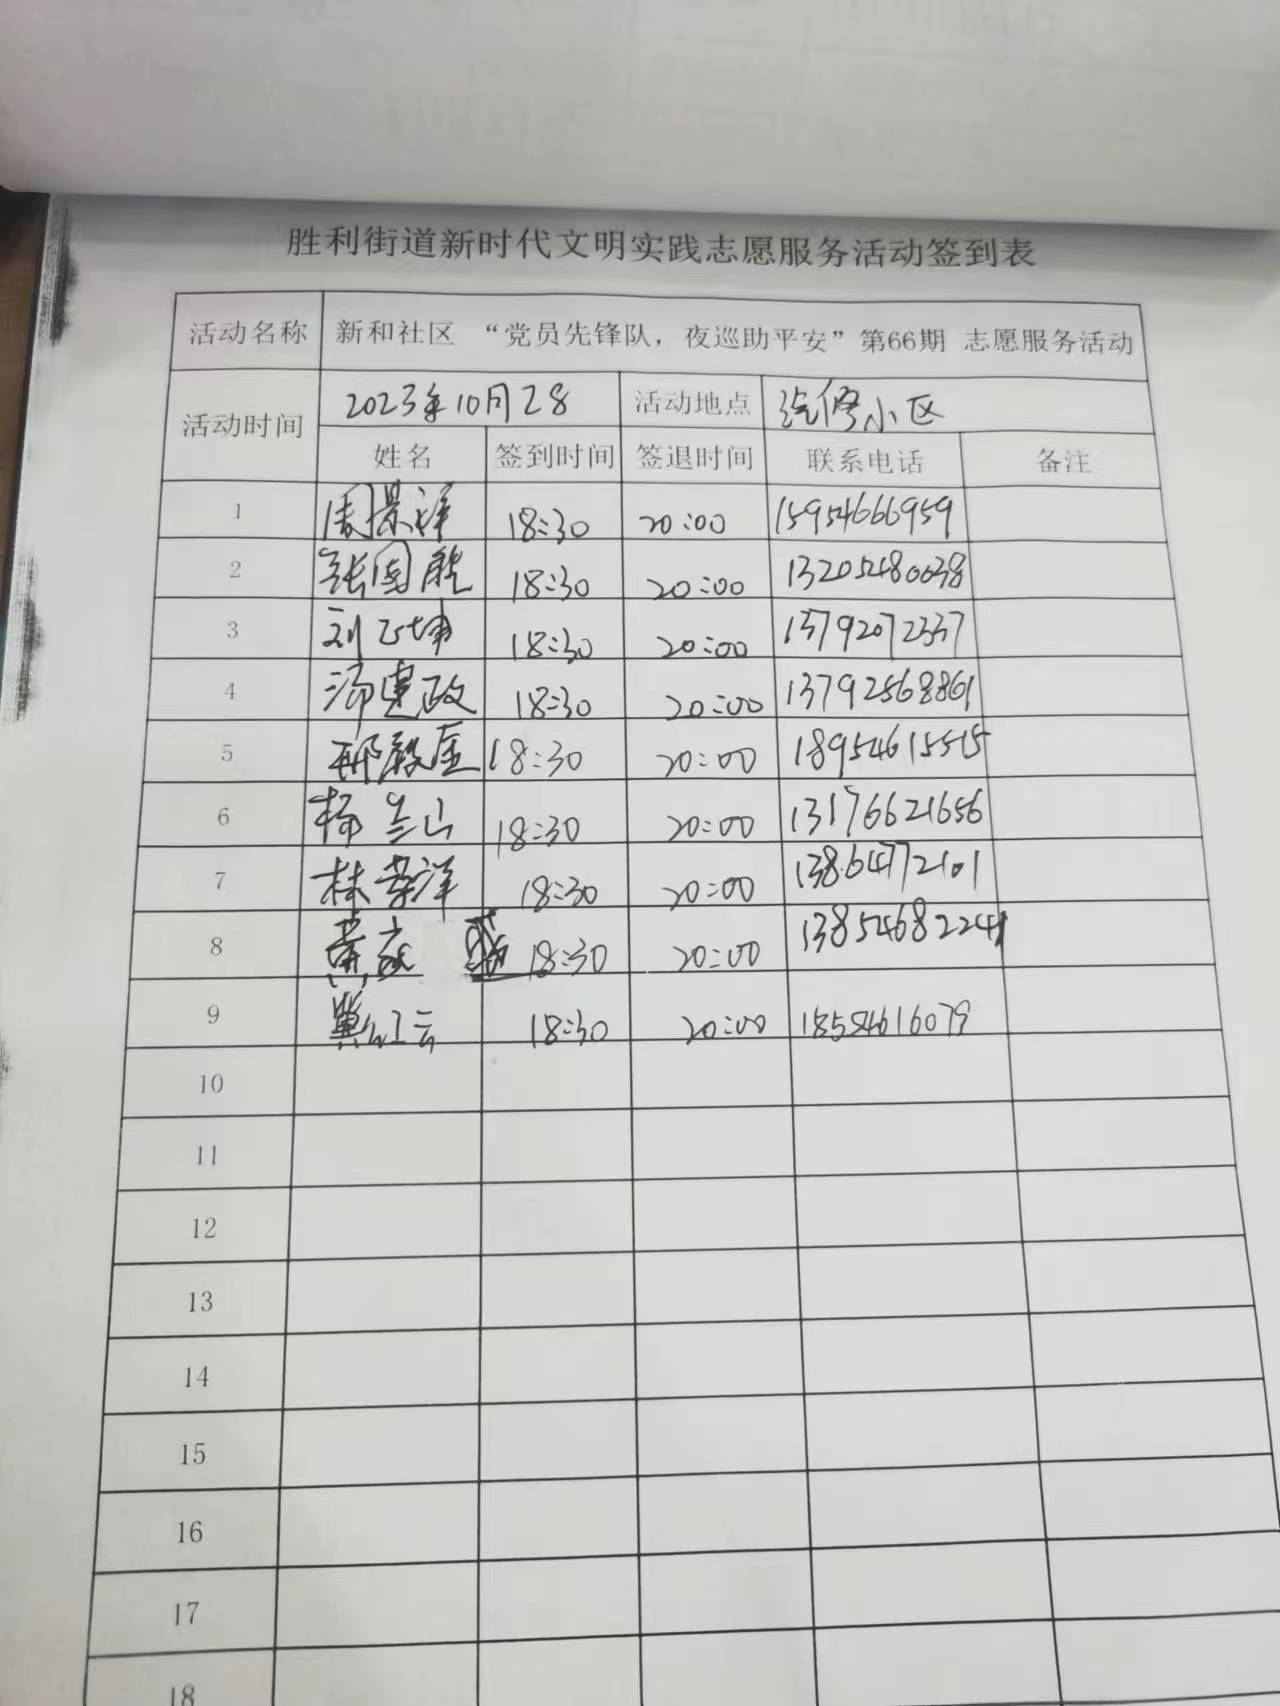 胜利街道新时代文明实践志愿服务活动签到表
活动名称 新和社区 “党员先锋队，夜巡助平安”第66期 志愿服务活动
活动时间 2023年10月28 活动地点 汽修小区
姓名 签到时间 签退时间 联系电话 备注
1 周景祥 18:30 20:00 15954666959
2 张国胜 18:30 20:00 13205480038
3 刘正坤 18:30 20:00 13792072337
4 汤建政 18:30 20:00 13792568861
5 邢毅 18:30 20:00 18954615515
6 杨兰山 18:30 20:00 13176621656
7 林荣洋 18:30 20:00 13864772101
8 黄 18:30 20:00 13854682241
9 冀红云 18:30 20:00 18584616079
10
11
12
13
14
15
16
17
18